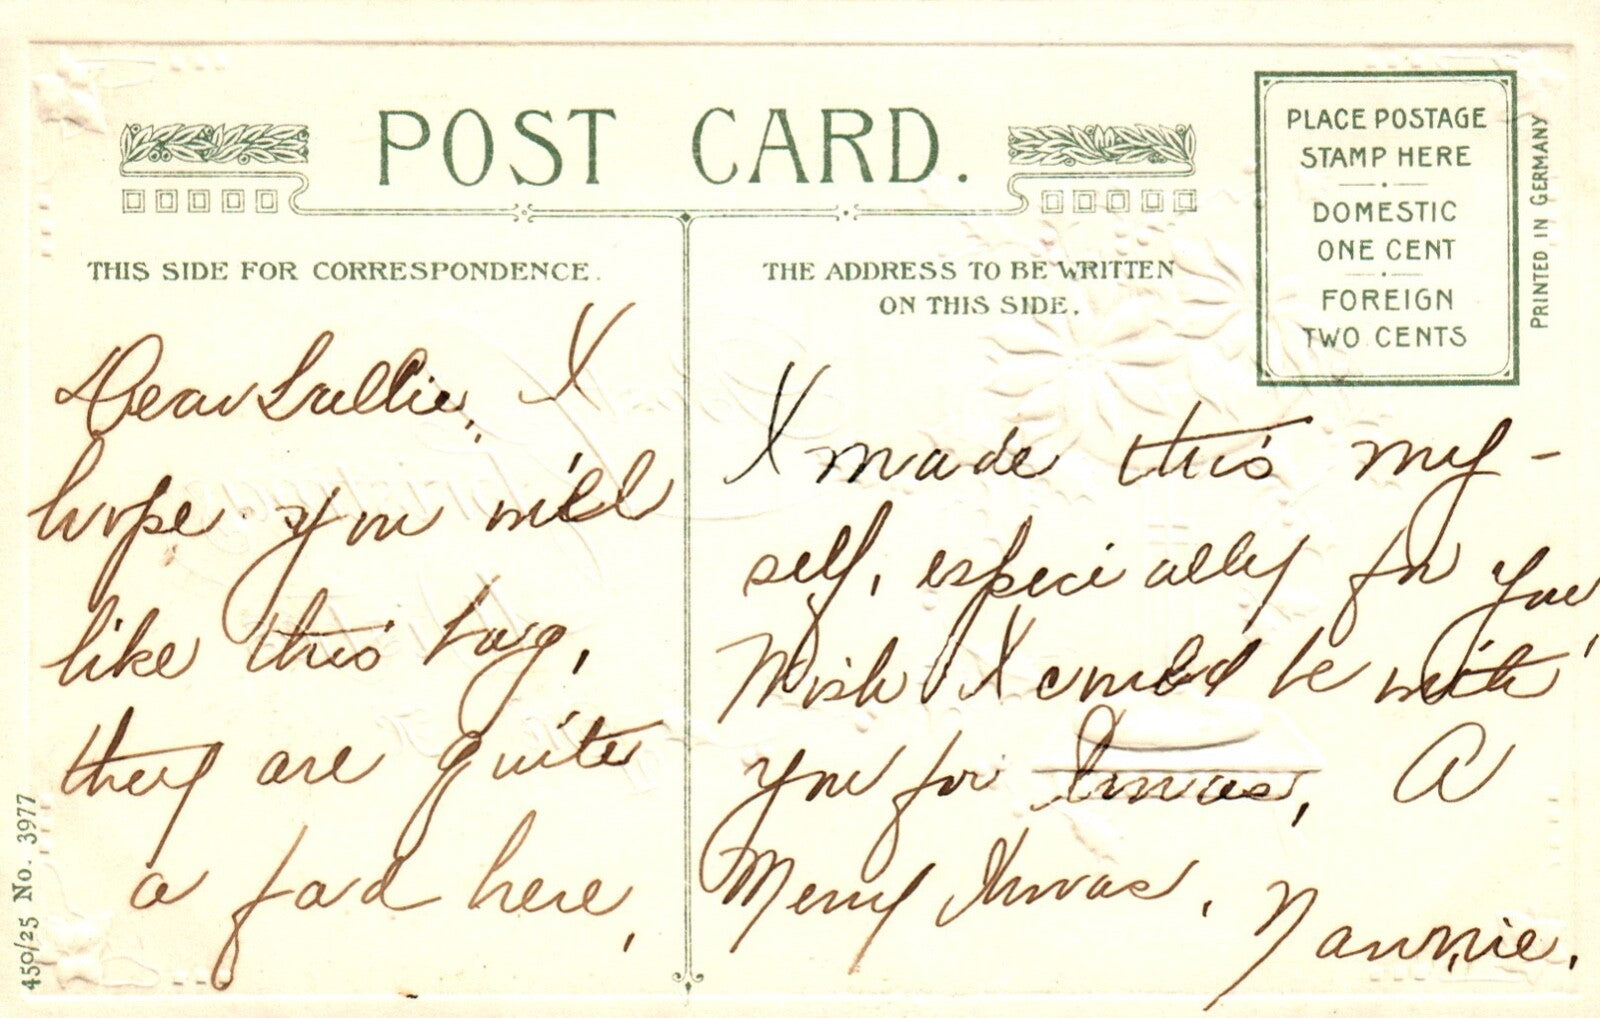 POST CARD.
PLACE POSTAGE
STAMP HERE
DOMESTIC
ONE CENT
FOREIGN
TWO CENTS
PRINTED IN GERMANY
THIS SIDE FOR CORRESPONDENCE.
THE ADDRESS TO BE WRITTEN
ON THIS SIDE.
Dear Lullie, I
hope you will
like this bag,
they are quite
a fad here,
I made this my-
self, especially for you
Wish I could be with
you for Xmas, A
Merry Xmas.
Nannie.
450/25 No. 3977